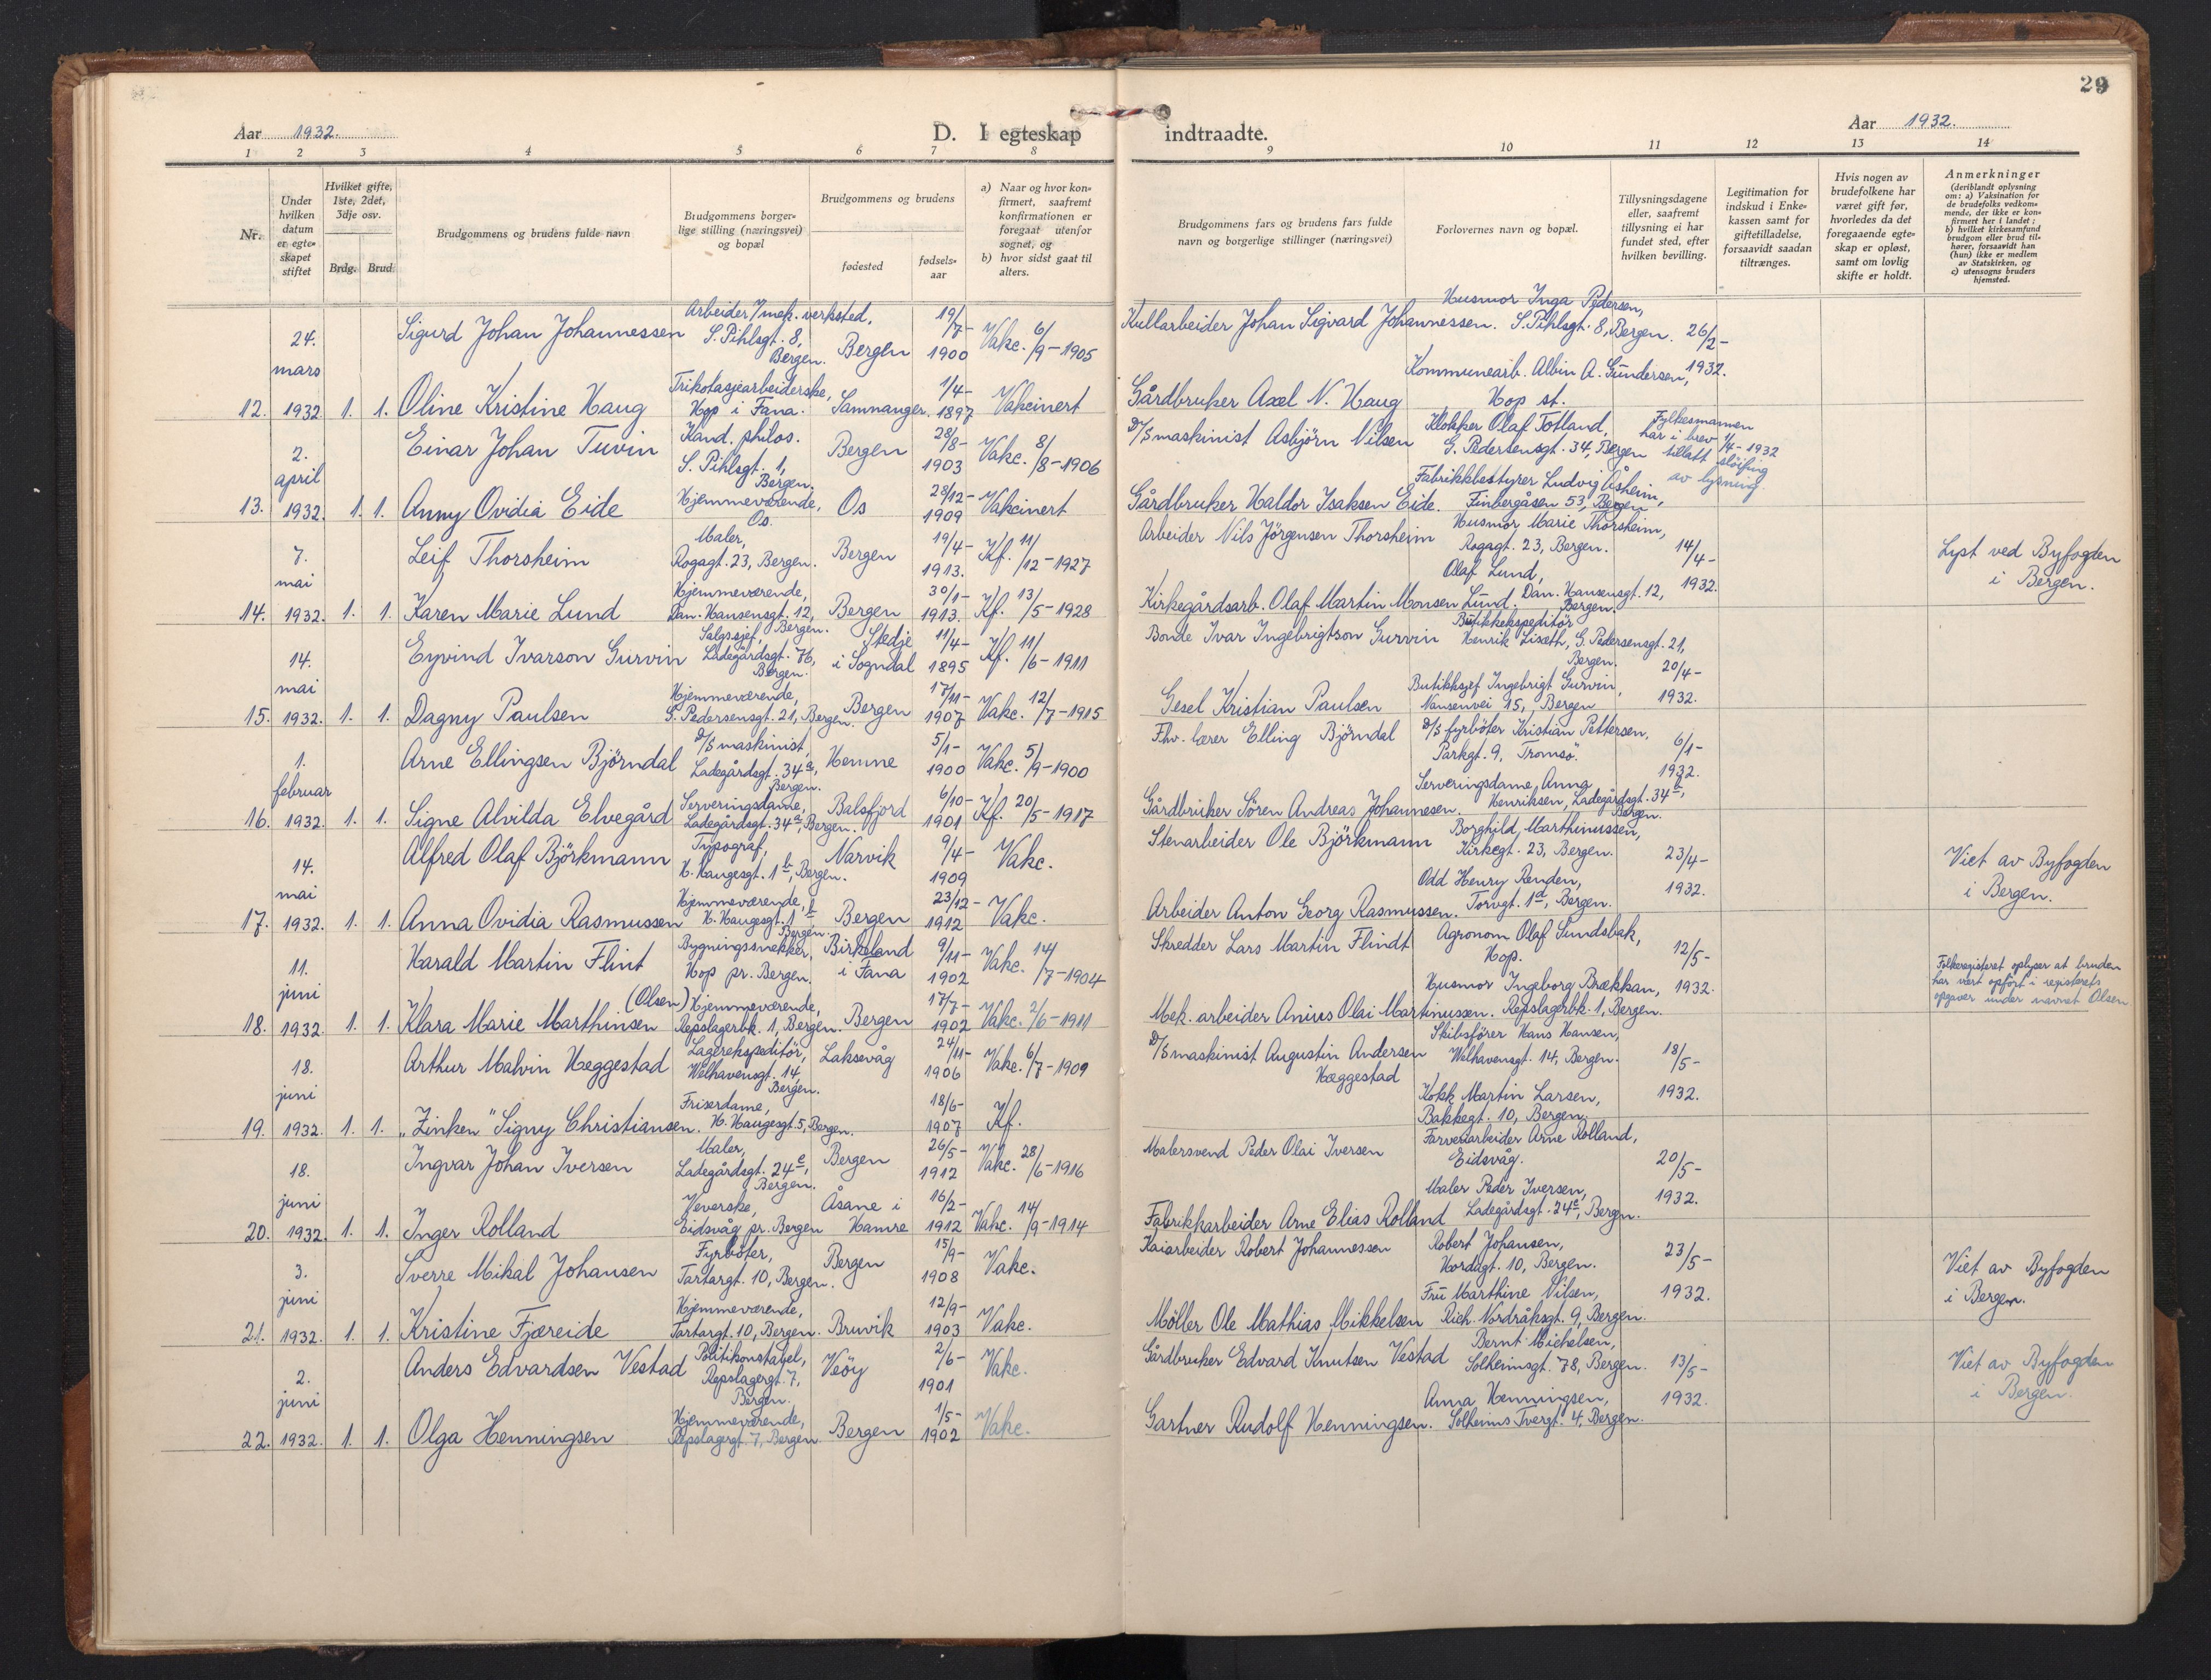 29
Aar 1932.
D. I egteskap indtraadte.
Aar 1932.
1 2 3 4 5 6 7 8 9 10 11 12 13 14
Nr.
Under hvilken datum er egteskapet stiftet
Hvilket gifte, 1ste, 2det, 3dje osv.
Brdg. Brud
Brudgommens og brudens fulde navn
Brudgommens borgerlige stilling (næringsvei) og bopæl
Brudgommens og brudens
fødested
fødselsaar
a) Naar og hvor konfirmert, saafremt konfirmationen er foregaat utenfor sognet, og
b) hvor sidst gaat til alters.
Brudgommens fars og brudens fars fulde navn og borgerlige stillinger (næringsvei)
Forlovernes navn og bopæl.
Tillysningsdagene eller, saafremt tillysning ei har fundet sted, efter hvilken bevilling.
Legitimation for indskud i Enkekassen samt for giftetilladelse, forsaavidt saadan tiltrænges.
Hvis nogen av brudefolkene har været gift før, hvorledes da det foregaaende egteskap er opløst, samt om lovlig skifte er holdt.
Anmerkninger
(deriblandt oplysning om: a) Vaksination for de brudefolks vedkommende, der ikke er konfirmert her i landet; b) hvilket kirkesamfund brudgom eller brud tilhører, forsaavidt han (hun) ikke er medlem av Statskirken, og c) utensogns bruders hjemsted.
12. 24. mars 1932 1. 1.
Sigurd Johan Johannessen
Arbeider / mek. verksted,
S. Pihlsgt. 8,
Bergen.
Bergen
19/7-
1900
Vakc. 6/9-1905
Kullarbeider Johan Sigvard Johannessen.
Husmor Inga Pedersen,
S. Pihlsgt. 8, Bergen.
26/2-
1932.
Oline Kristine Haug
Trikotasjearbeiderske,
Hop i Fana.
Samnanger.
1/4-
1897
Vakcinert
Gårdbruker Axel N. Haug
Kommunearb. Albin A. Gundersen,
Hop st.
13. 2. april 1932. 1. 1.
Einar Johan Tuvin
Kand. philos.
S. Pihlsgt. 1,
Bergen.
Bergen
28/8-
1903
Vakc. 8/8-1906
D/S maskinist Asbjörn Nilsen
Klokker Olaf Totland,
G. Pedersensgt. 34, Bergen
Fylkesmannen
har i brev 1/4-1932
tillatt slöifing
av lysning.
Anny Ovidia Eide
Hjemmeværende,
Os.
Os
28/12-
1909
Vakcinert
Gårdbruker Haldor Isaksen Eide.
Fabrikkbestyrer Ludvig Åsheim,
Finbergåsen 53, Bergen
14. 7. mai 1932. 1. 1.
Leif Thorsheim
Maler,
Rogagt. 23, Bergen.
Bergen
19/4-
1913.
Kf. 11/12-1927
Arbeider Nils Jörgensen Thorsheim
Husmor Marie Thorsheim,
Rogagt. 23, Bergen.
14/4-
1932.
Lyst ved Byfogden
i Bergen.
Karen Marie Lund
Hjemmeværende,
Dan. Hansensgt. 12,
Bergen.
Bergen
30/1-
1913.
Kf. 13/5-1928
Kirkegårdsarb. Olaf Martin Monsen Lund.
Olaf Lund,
Dan. Hansensgt. 12,
Bergen.
15. 14. mai 1932. 1. 1.
Eyvind Ivarson Gurvin
Salgssjef,
Ladegårdsgt. 76,
Bergen.
Stedje
i Sogndal
11/4-
1895
Kf. 11/6-1911
Bonde Ivar Ingebrigtson Gurvin
Butikkekspeditör
Henrik Liseth, G. Pedersensgt. 21,
Bergen.
20/4-
1932.
Dagny Paulsen
Hjemmeværende,
G. Pedersensgt. 21, Bergen.
Bergen
17/11-
1907
Vakc. 12/7-1915
Gesel Kristian Paulsen
Butikksjef Ingebrigt Gurvin,
Nansenvei 15, Bergen
16. 1. februar 1932. 1. 1.
Arne Ellingsen Björndal
D/S maskinist,
Ladegårdsgt. 34a,
Bergen.
Hemne
5/1-
1900
Vakc. 5/9-1900
Fhv. lærer Elling Björndal
D/S fyrböter Kristian Pettersen,
Parkgt. 9, Tromsö.
6/1-
1932.
Signe Alvilda Elvegård
Serveringsdame,
Ladegårdsgt. 34a, Bergen.
Balsfjord
6/10-
1901
Kf. 20/5-1917
Gårdbruker Sören Andreas Johannesen.
Serveringsdame Anna
Henriksen, Ladegårdsgt. 34a,
Bergen.
17. 14. mai 1932. 1. 1.
Alfred Olaf Björkmann
Typograf,
H. Haugesgt. 1b, Bergen.
Narvik
9/4-
1909
Vakc.
Stenarbeider Ole Björkmann
Borghild Marthinussen,
Kirkegt. 23, Bergen.
23/4-
1932.
Viet av Byfogden
i Bergen.
Anna Ovidia Rasmussen
Hjemmeværende,
H. Haugesgt. 1b
Bergen.
Bergen
23/12-
1912
Vakc.
Arbeider Anton Georg Rasmussen.
Odd Henry Renden,
Torvgt. 1a, Bergen.
18. 11. juni 1932. 1. 1.
Harald Martin Flint
Bygningssnekker,
Hop pr. Bergen.
Birkeland
i Fana
9/11-
1902
Vakc. 14/7-1904
Skredder Lars Martin Flindt
Agronom Olaf Sundsbak,
Hop.
12/5-
1932.
Folkeregisteret oplyser at bruden
har vært opfört i registerets
opgaver under navnet Olsen
(Olsen)
Klara Marie Marthinsen
Hjemmeværende,
Repslagerbk. 1, Bergen.
Bergen
17/7-
1902
Vakc. 2/6-1911
Mek. arbeider Anius Olai Martinussen.
Husmor Ingeborg Brækkan,
Repslagerbk. 1, Bergen.
19. 18. juni 1932. 1. 1.
Arthur Malvin Hæggestad
Lagerekspeditör,
Welhavensgt. 14,
Bergen.
Laksevåg
24/11-
1906
Vakc. 6/7-1909
D/S maskinist Augustin Andersen
Hæggestad
Skibsförer Hans Hansen,
Welhavensgt. 14, Bergen.
18/5-
1932.
"Zinken" Signy Christiansen.
Friserdame,
H. Haugesgt. 5, Bergen.
18/6-
1907
Kf.
Kokk Martin Larsen,
Bakkegt. 10, Bergen.
20. 18. juni 1932. 1. 1.
Ingvar Johan Iversen
Maler,
Ladegårdsgt. 24c,
Bergen.
Bergen
26/5-
1912
Vakc. 28/6-1916
Malersvend Peder Olai Iversen
Farveriarbeider Arne Rolland,
Eidsvåg.
20/5-
1932.
Inger Rolland
Veverske,
Eidsvåg pr. Bergen
Åsane i
Hamre
16/2-
1912
Vakc. 14/9-1914
Fabrikkarbeider Arne Elias Rolland
Maler Peder Iversen,
Ladegårdsgt. 24c, Bergen.
21. 3. juni 1932. 1. 1.
Sverre Mikal Johansen
Fyrböter,
Tartargt. 10, Bergen.
Bergen
15/9-
1908
Vakc.
Kaiarbeider Robert Johannessen
Robert Johansen,
Hordagt. 10, Bergen.
23/5-
1932.
Viet av Byfogden
i Bergen.
Kristine Fjæreide
Hjemmeværende,
Tartargt. 10, Bergen.
Bruvik
12/9-
1903
Vakc.
Möller Ole Mathias Mikkelsen
Fru Marthine Nilsen,
Rich. Nordråksgt. 9, Bergen.
22. 2. juni 1932. 1. 1.
Anders Edvardsen Vestad
Politikonstabel,
Repslagergt. 7,
Bergen.
Veöy
2/6-
1901
Vakc.
Gårdbruker Edvard Knutsen Vestad
Bernt Michelsen,
Solheimsgt. 78, Bergen.
13/5-
1932.
Viet av Byfogden
i Bergen.
Olga Henningsen
Hjemmeværende,
Repslagergt. 7, Bergen.
Bergen
1/5-
1902
Vakc.
Gartner Rudolf Henningsen.
Anna Henningsen,
Solheims Tvergt. 4, Bergen.